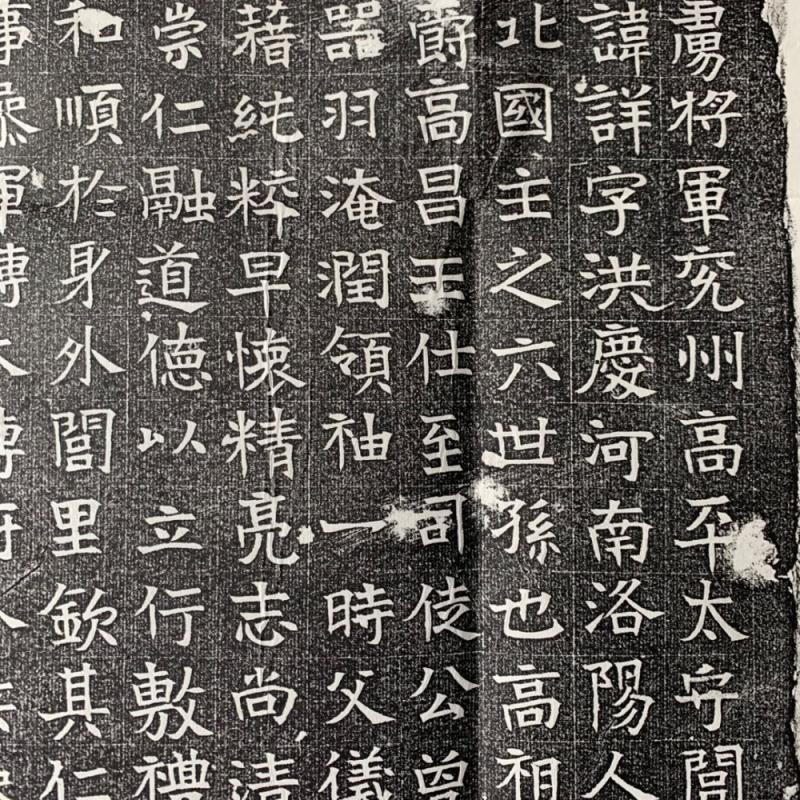 虜將軍兖州高平太守閭
諱詳字洪慶河南洛陽人
北國主之六世孫也高祖
爵高昌王仕至司徒公曾
器羽淹潤領袖一時父儀
藉純粹早懐精亮志尚清
崇仁融道德以立行敷禮
和順於身外閭里欽其仁
事